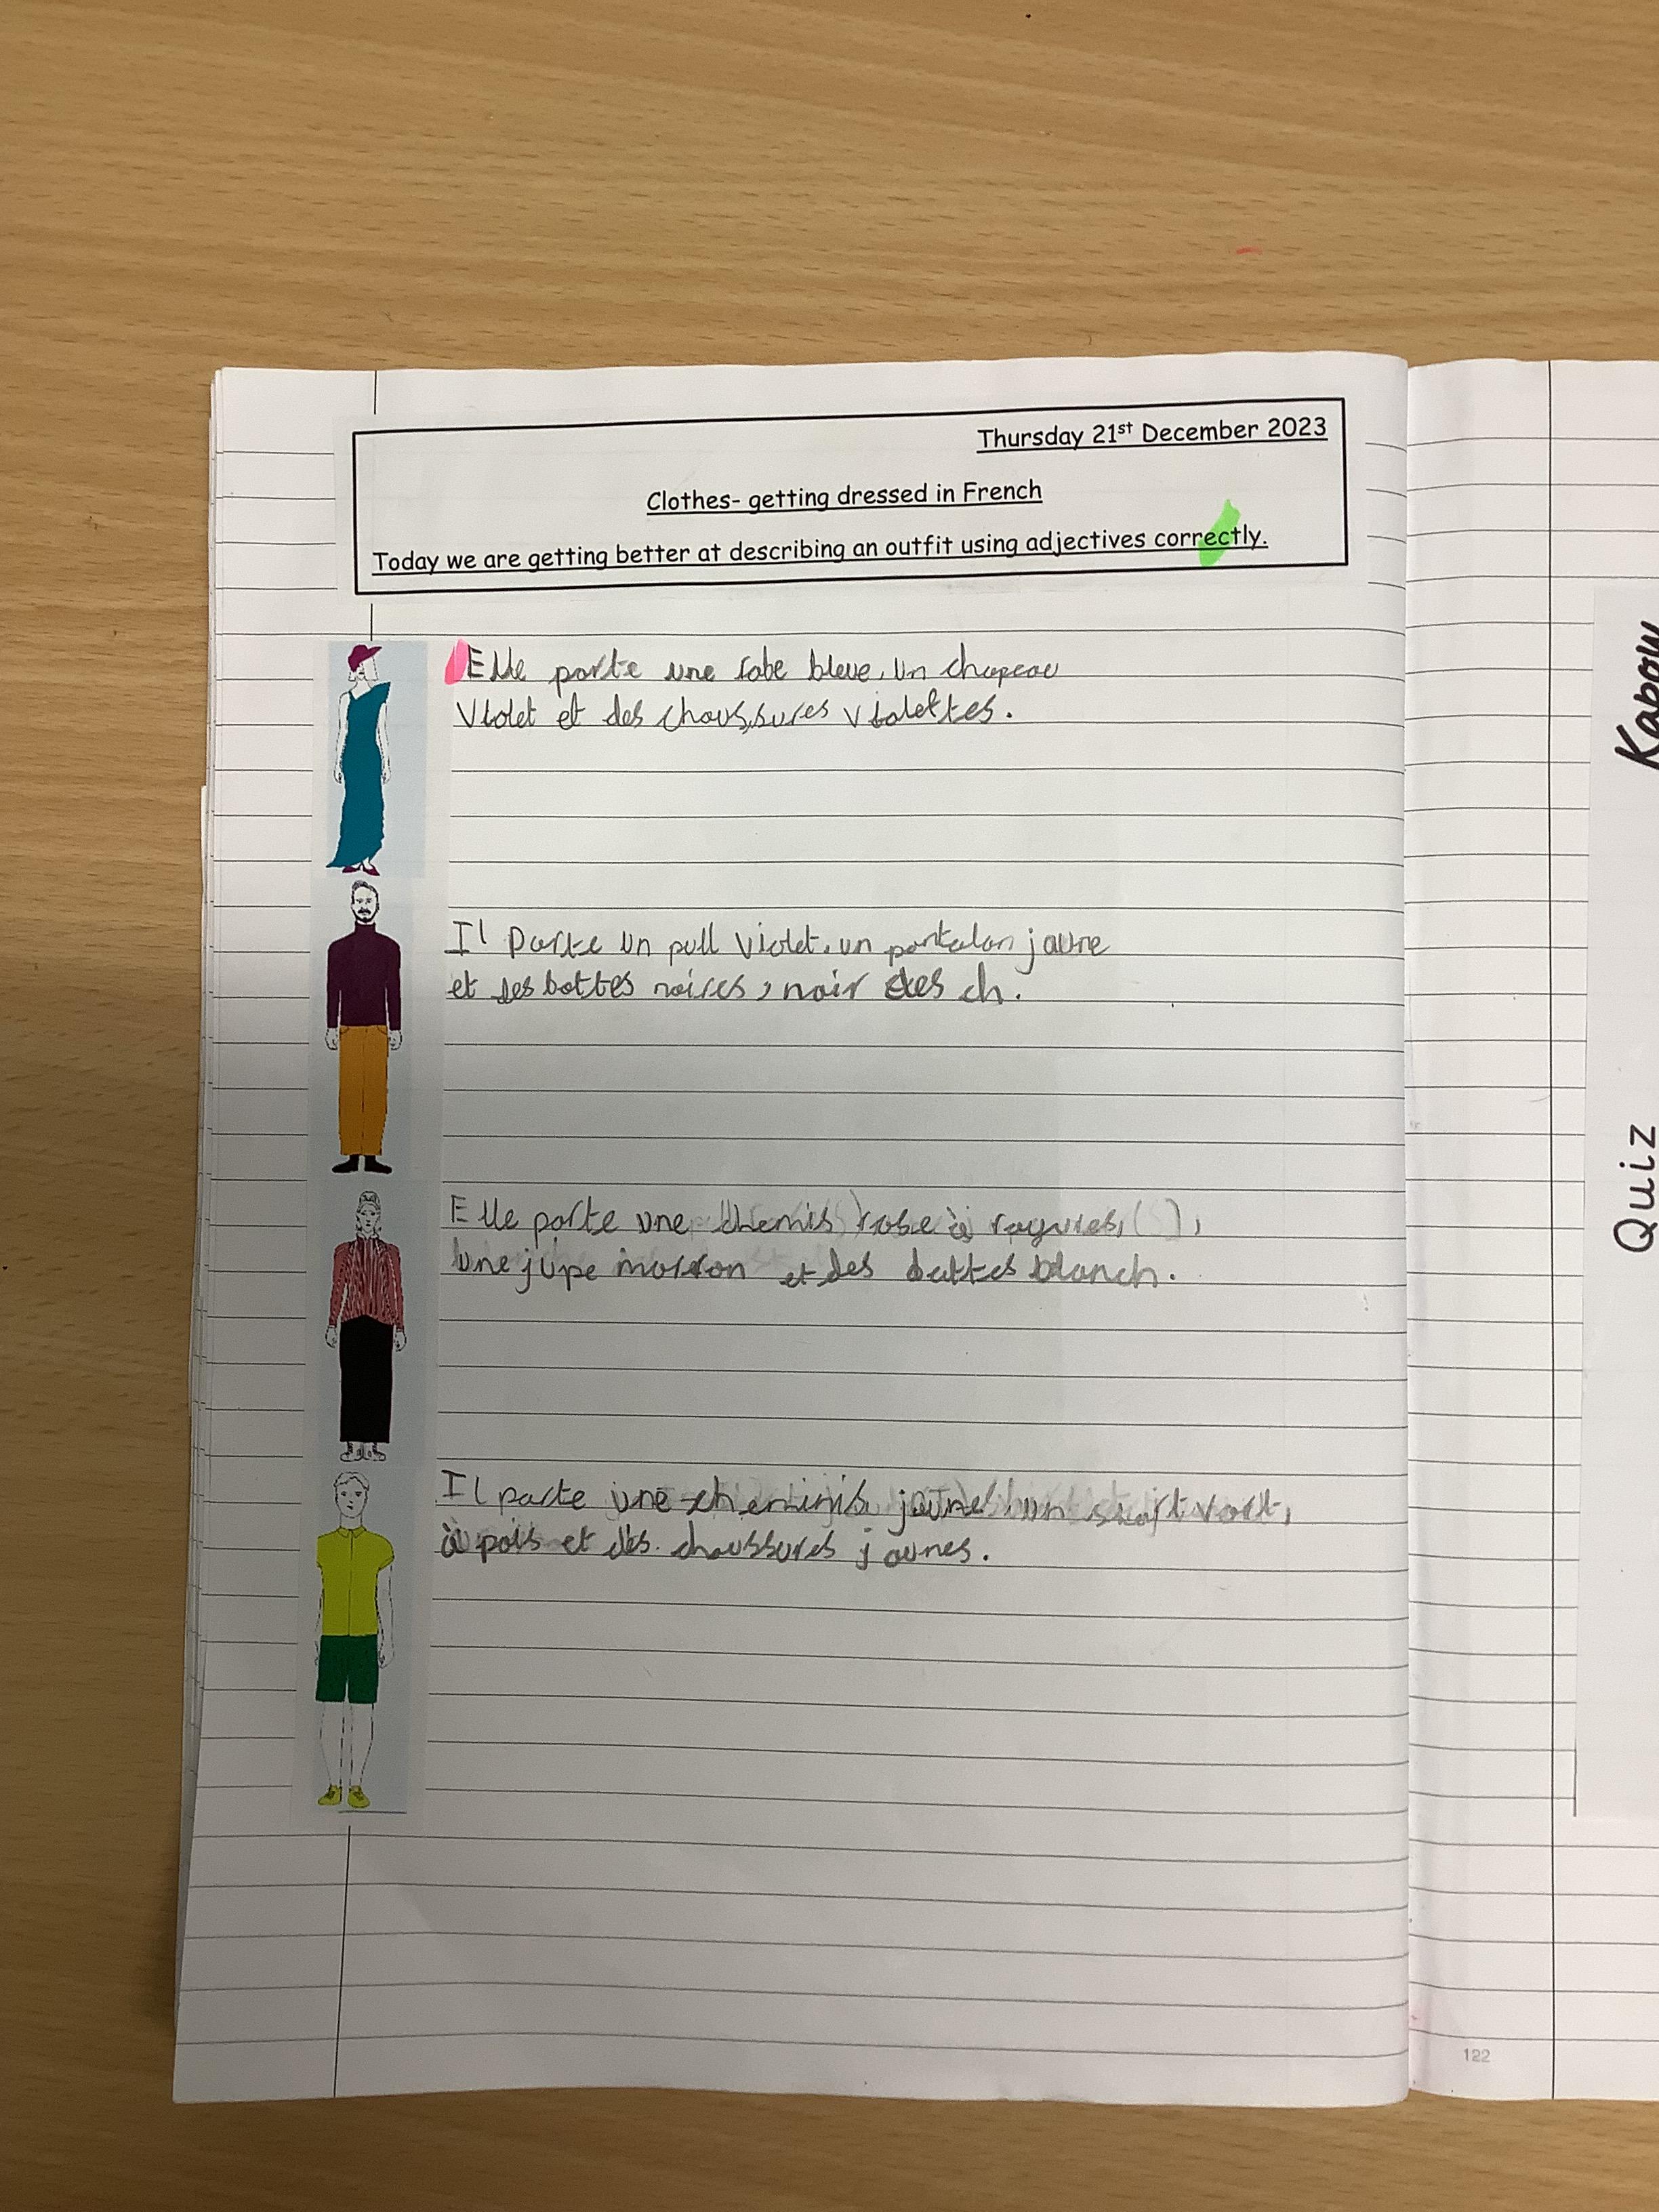 Thursday 21st December 2023
Clothes- getting dressed in French
Today we are getting better at describing an outfit using adjectives correctly.
Elle porte une robe bleue, un chapeau
violet et des chaussures violettes.
Il porte un pull violet, un pantalon jaune
et des bottes noires, noir des ch.
Elle porte une chemis rose à rayures, ( ),
une jupe marron et des bottes blanch.
Il porte une jaune un vort,
à pois et des chaussures jaunes.
Kapow
Quiz
122